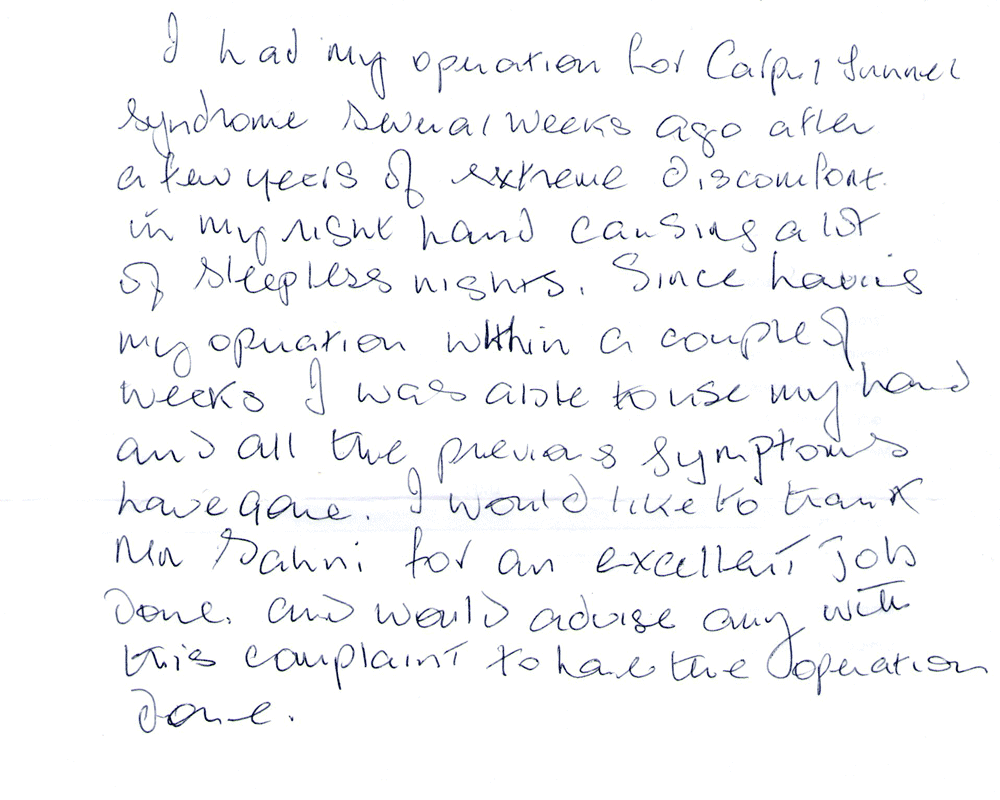 I had my operation for Carpal Tunnel
syndrome several weeks ago after
a few years of extreme discomfort
in my right hand causing a lot
of sleepless nights. Since having
my operation within a couple of
weeks I was able to use my hand
and all the previous symptoms
have gone. I would like to thank
Mr Sahni for an excellent job
done. and would advise any with
this complaint to have the operation
done.